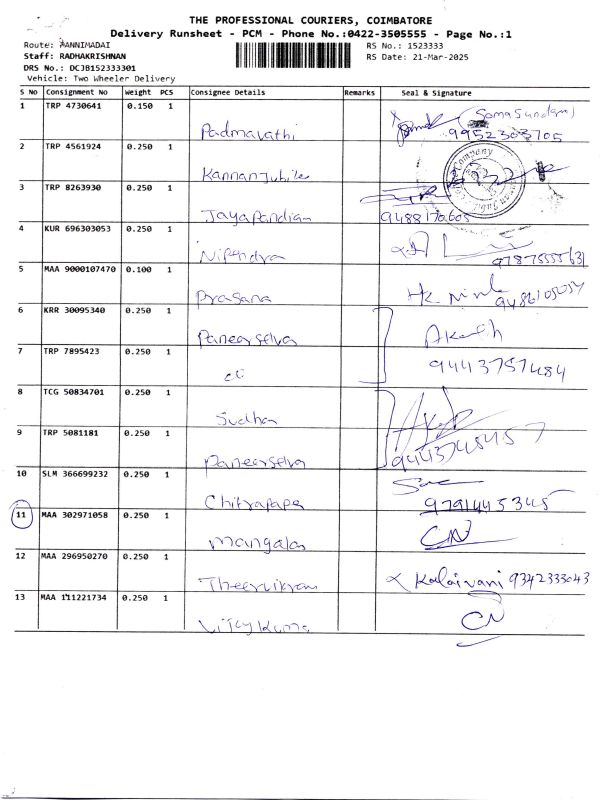 THE PROFESSIONAL COURIERS, COIMBATORE
Delivery Runsheet - PCM - Phone No.:0422-3505555 - Page No.:1
Route: PANNIMADAI RS No.: 1523333
Staff: RADHAKRISHNAN RS Date: 21-Mar-2025
DRS No.: DCJB152333301
Vehicle: Two Wheeler Delivery
S No Consignment No Weight PCS Consignee Details Remarks Seal & Signature
1 TRP 4730641 0.150 1 Padmavathi (Somasundam) 9952303705
2 TRP 4561924 0.250 1 Kannan Jubilee
3 TRP 8263930 0.250 1 Jayapandian 9488170605
4 KUR 696303053 0.250 1 Nipendra
5 MAA 9000107470 0.100 1 Prasana
6 KRR 30095340 0.250 1 Paneerselva Akash
7 TRP 7895423 0.250 1 9443757484
8 TCG 50834701 0.250 1 Sudhan
9 TRP 5081181 0.250 1 Paneerselva
10 SLM 366699232 0.250 1 Chitrapapa 9791445345
11 MAA 302971058 0.250 1 Mangalas CN
12 MAA 296950270 0.250 1 Kalaivani 9342333043
13 MAA 111221734 0.250 1 Vijaykuma CN